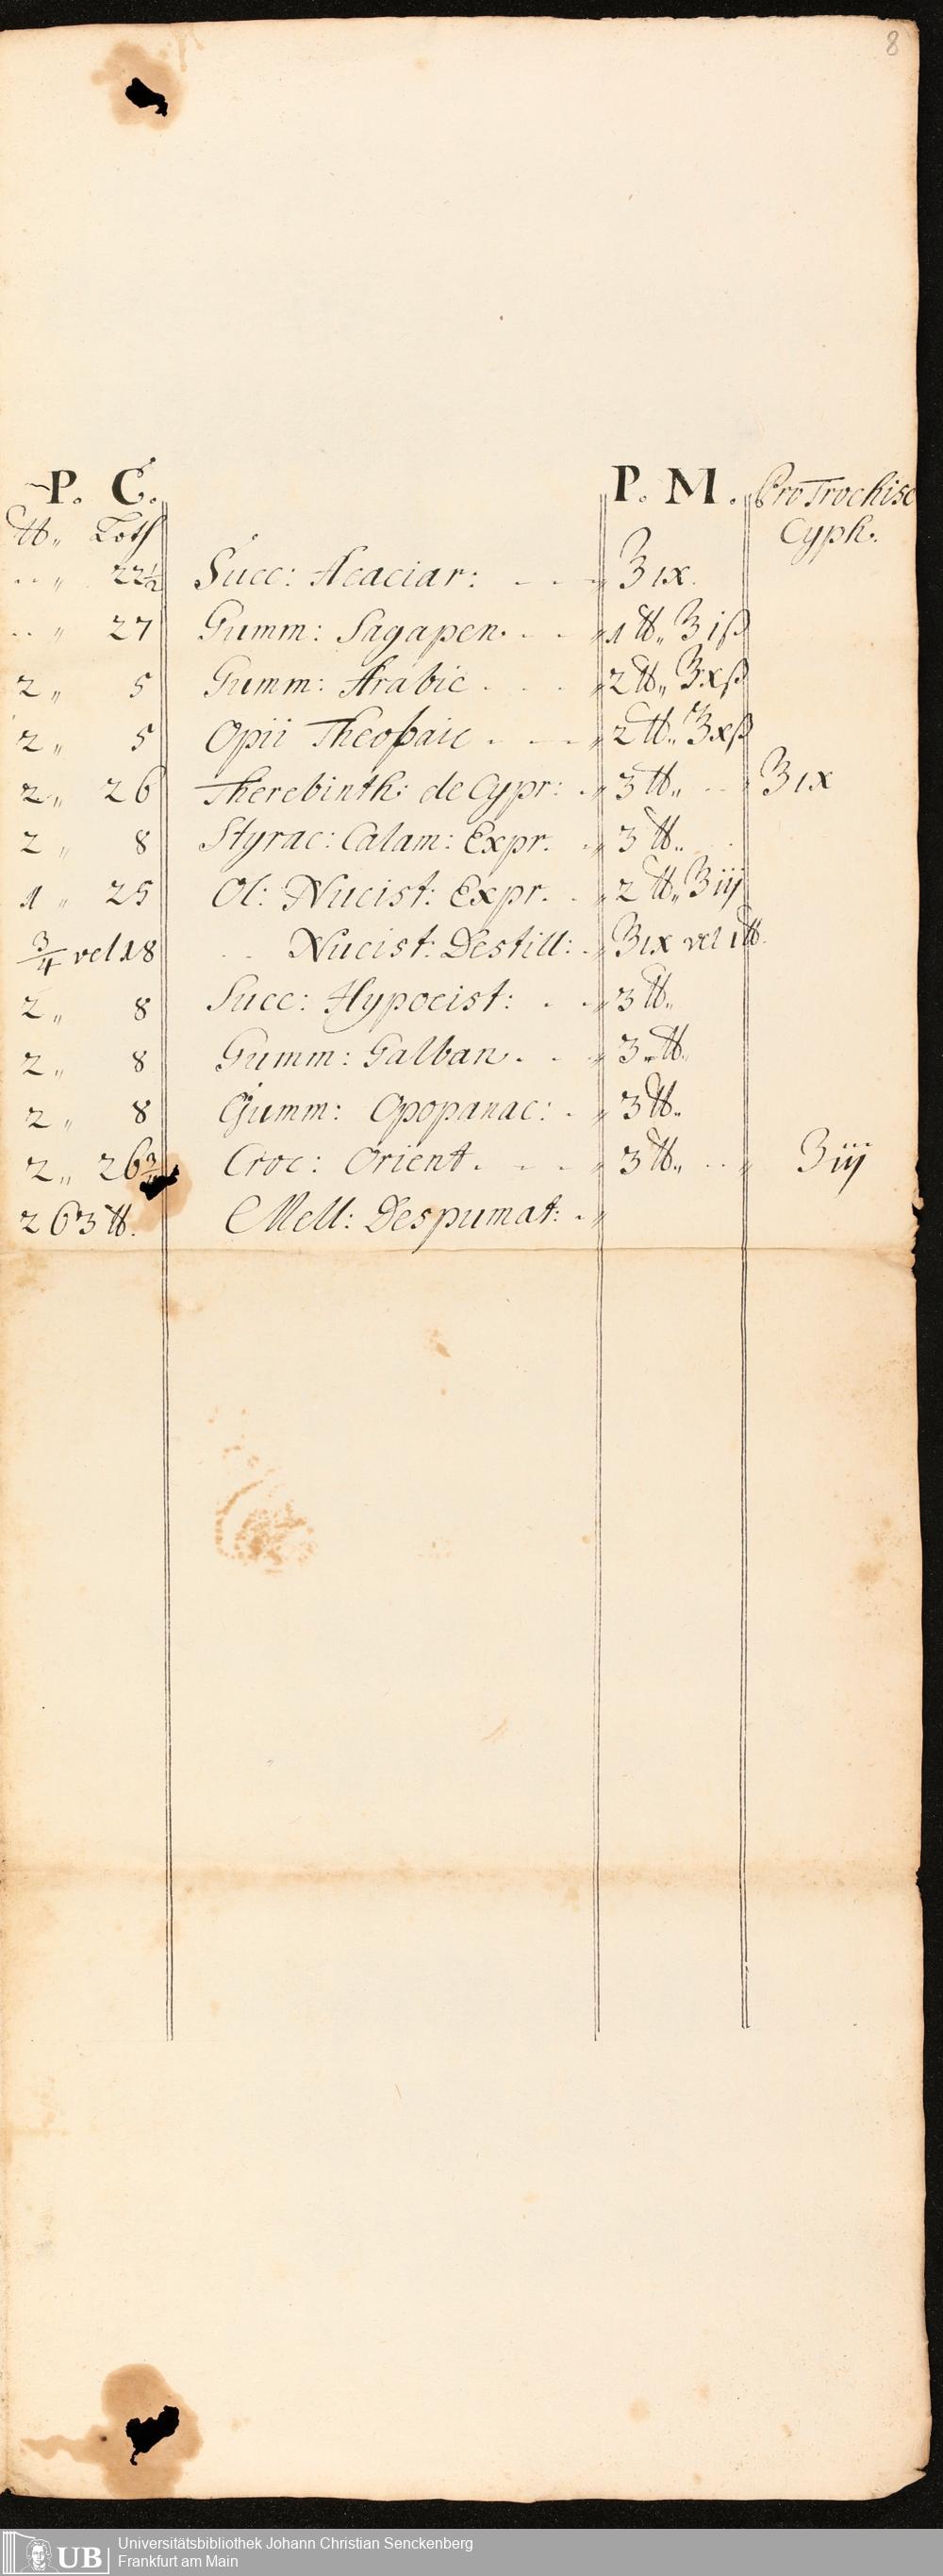 8
P. C. P. M. Pro Trochisc
℔„ Loth Cyph:
.. „ 22½ Succ: Acaciar: ℥ ix.
.. „ 27 Gumm: Sagapen. 1 ℔„ ℥ iß
2 „ 5 Gumm: Arabic 2 ℔„ ℥xß
2 „ 5 Opii Thebaic 2 ℔„ ℥xß
2 „ 26 Therebinth: de Cypr: 3 ℔„ ℥ ix
2 „ 8 Styrac: Calam: Expr. 3 ℔„
1 „ 25 Ol: Nucist: Expr. 2 ℔„ ℥ iij
¾ vel 18 .. Nucist: Destill: ℥ix vel 1℔.
2 „ 8 Succ: Hypocist: 3 ℔„
2 „ 8 Gumm: Galban. 3 ℔„
2 „ 8 Gumm: Opopanac: 3 ℔„
2 „ 26¾ Croc: Orient. 3 ℔„ ℥ iij
263 ℔. Mell: Despumat:
UB Universitätsbibliothek Johann Christian Senckenberg
Frankfurt am Main